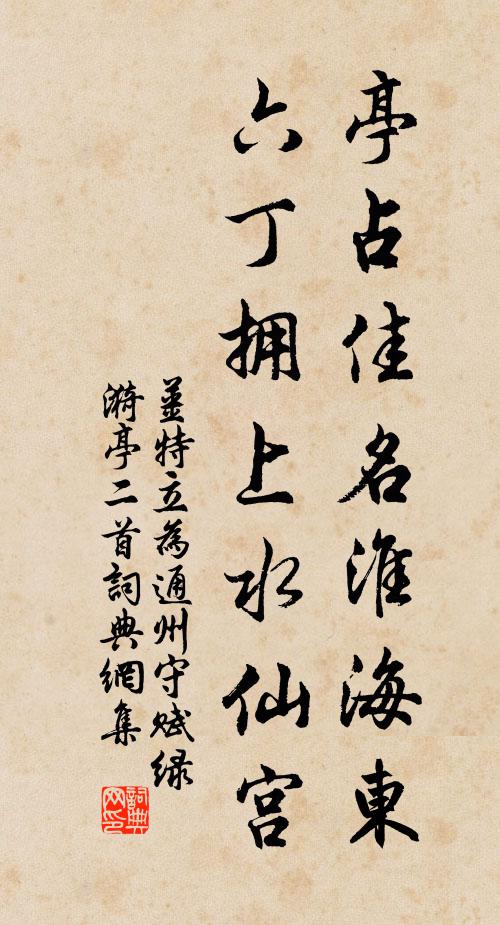 亭占佳名淮海東
六丁拥上水仙宫
姜特立為通州守賦绿
漪亭二首詞典網集
詞典网印